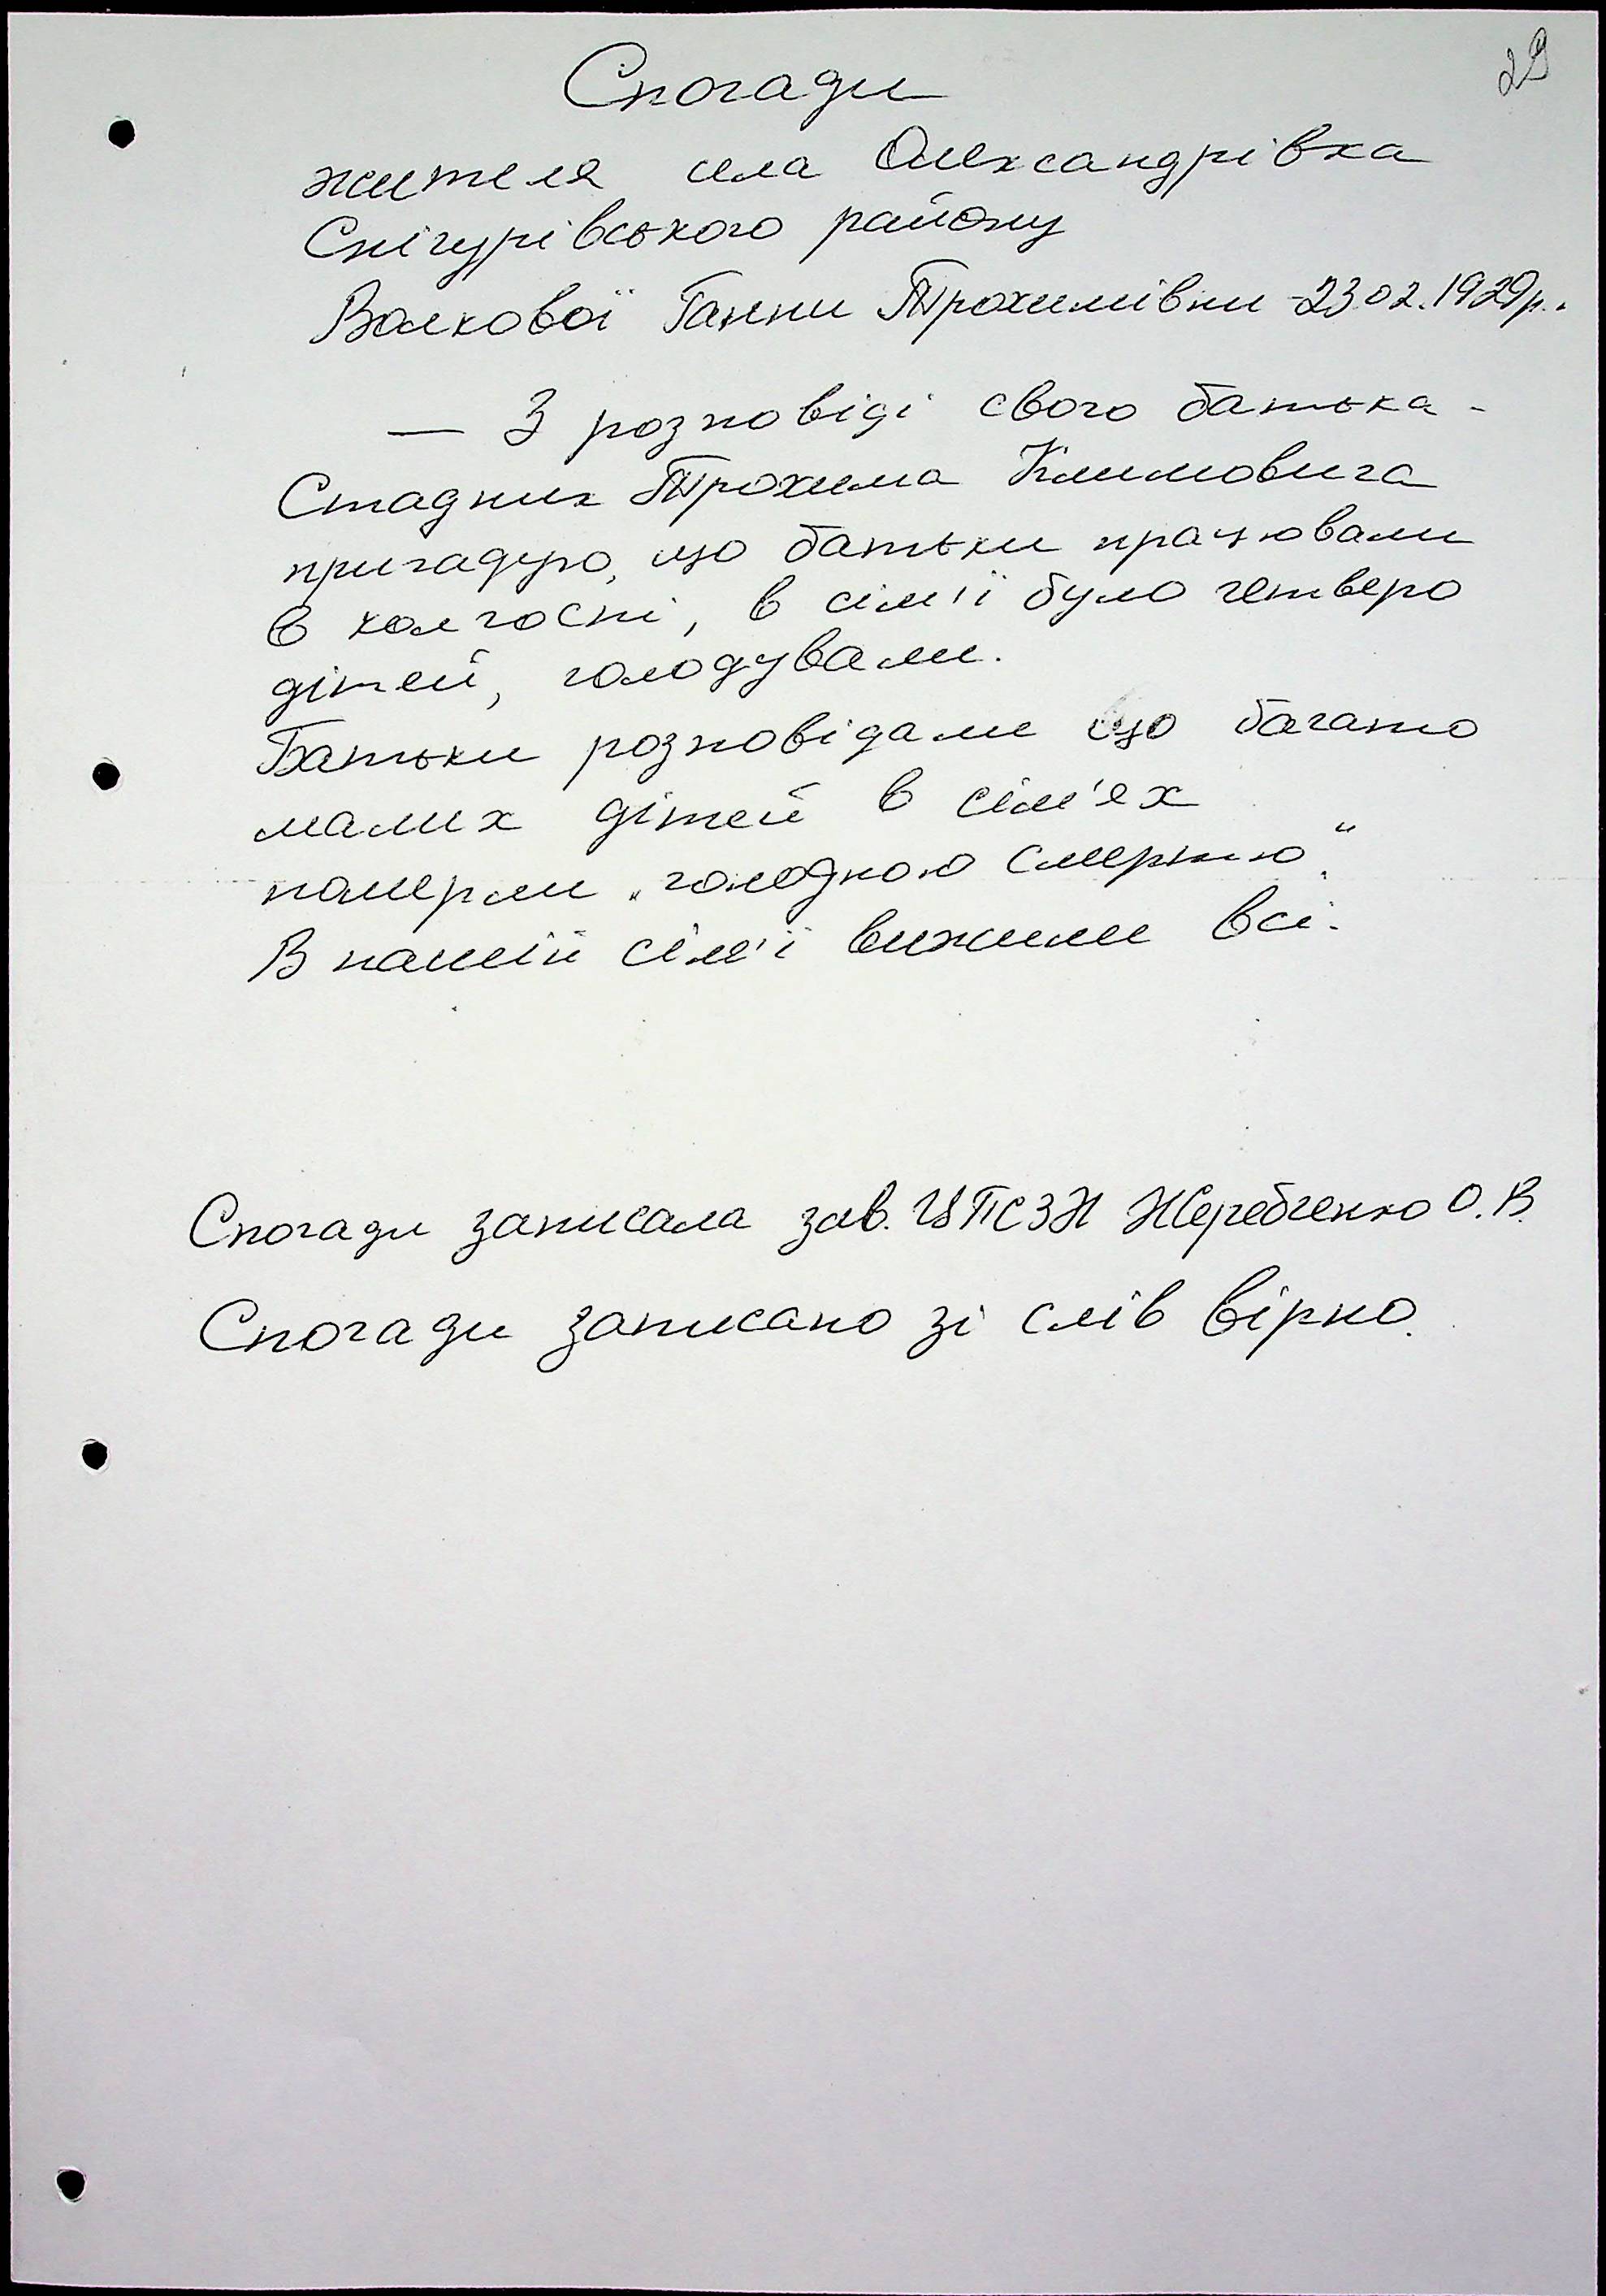 29
Спогади
жителя села Олександрівка
Снігурівського району
Волкової Ганни Трохимівни - 23.02.1929р.
— З розповіді свого батька -
Стадник Трохима Климовича
пригадую, що батьки працювали
в колгоспі, в сім'ї було четверо
дітей, голодували.
Батьки розповідали що багато
малих дітей в сім'ях
померли „голодною смертю".
В нашій сім'ї вижили всі.
Спогади записала зав. ЦПСЗН Жеребченко О.В.
Спогади записано зі слів вірно.